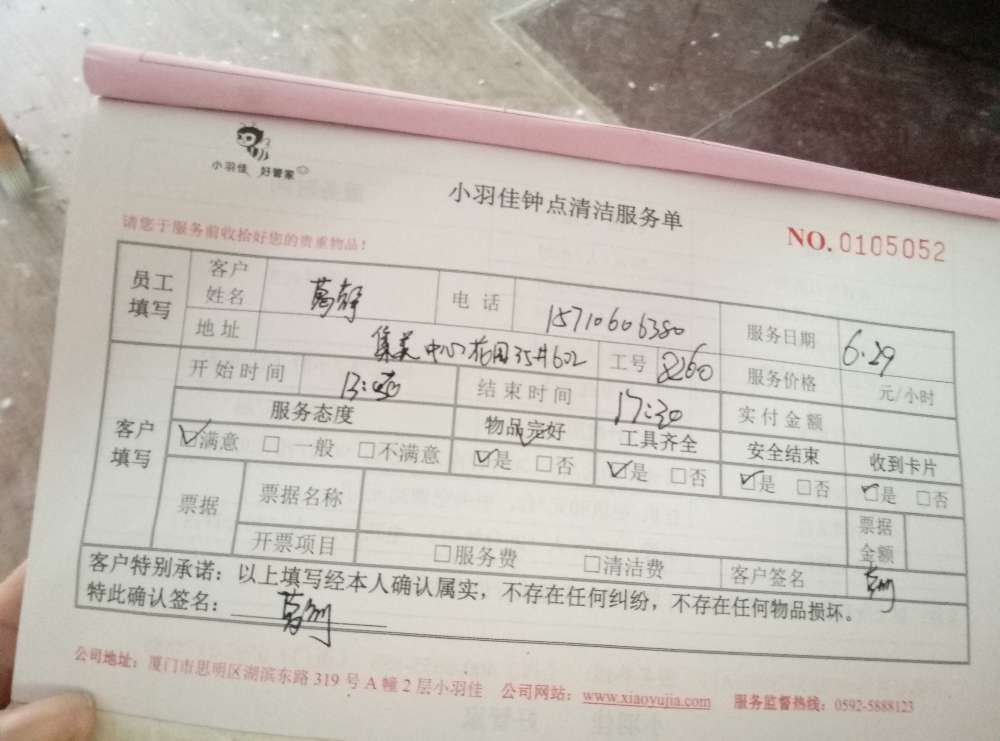 小羽佳 好管家
小羽佳钟点清洁服务单
NO. 0105052
请您于服务前收拾好您的贵重物品！
员工填写 客户姓名 葛静 电话 15710606380 服务日期 6.29
地址 集美中心花园35#602 工号 8260 服务价格 元/小时
客户填写 开始时间 13:00 结束时间 17:30 实付金额
服务态度 物品完好 工具齐全 安全结束 收到卡片
☑满意 □一般 □不满意 ☑是 □否 ☑是 □否 ☑是 □否 ☑是 □否
票据 票据名称 票据金额
开票项目 □服务费 □清洁费 客户签名
客户特别承诺：以上填写经本人确认属实，不存在任何纠纷，不存在任何物品损坏。
特此确认签名：
公司地址：厦门市思明区湖滨东路 319 号 A 幢 2 层小羽佳 公司网站：www.xiaoyujia.com 服务监督热线：0592-5888123